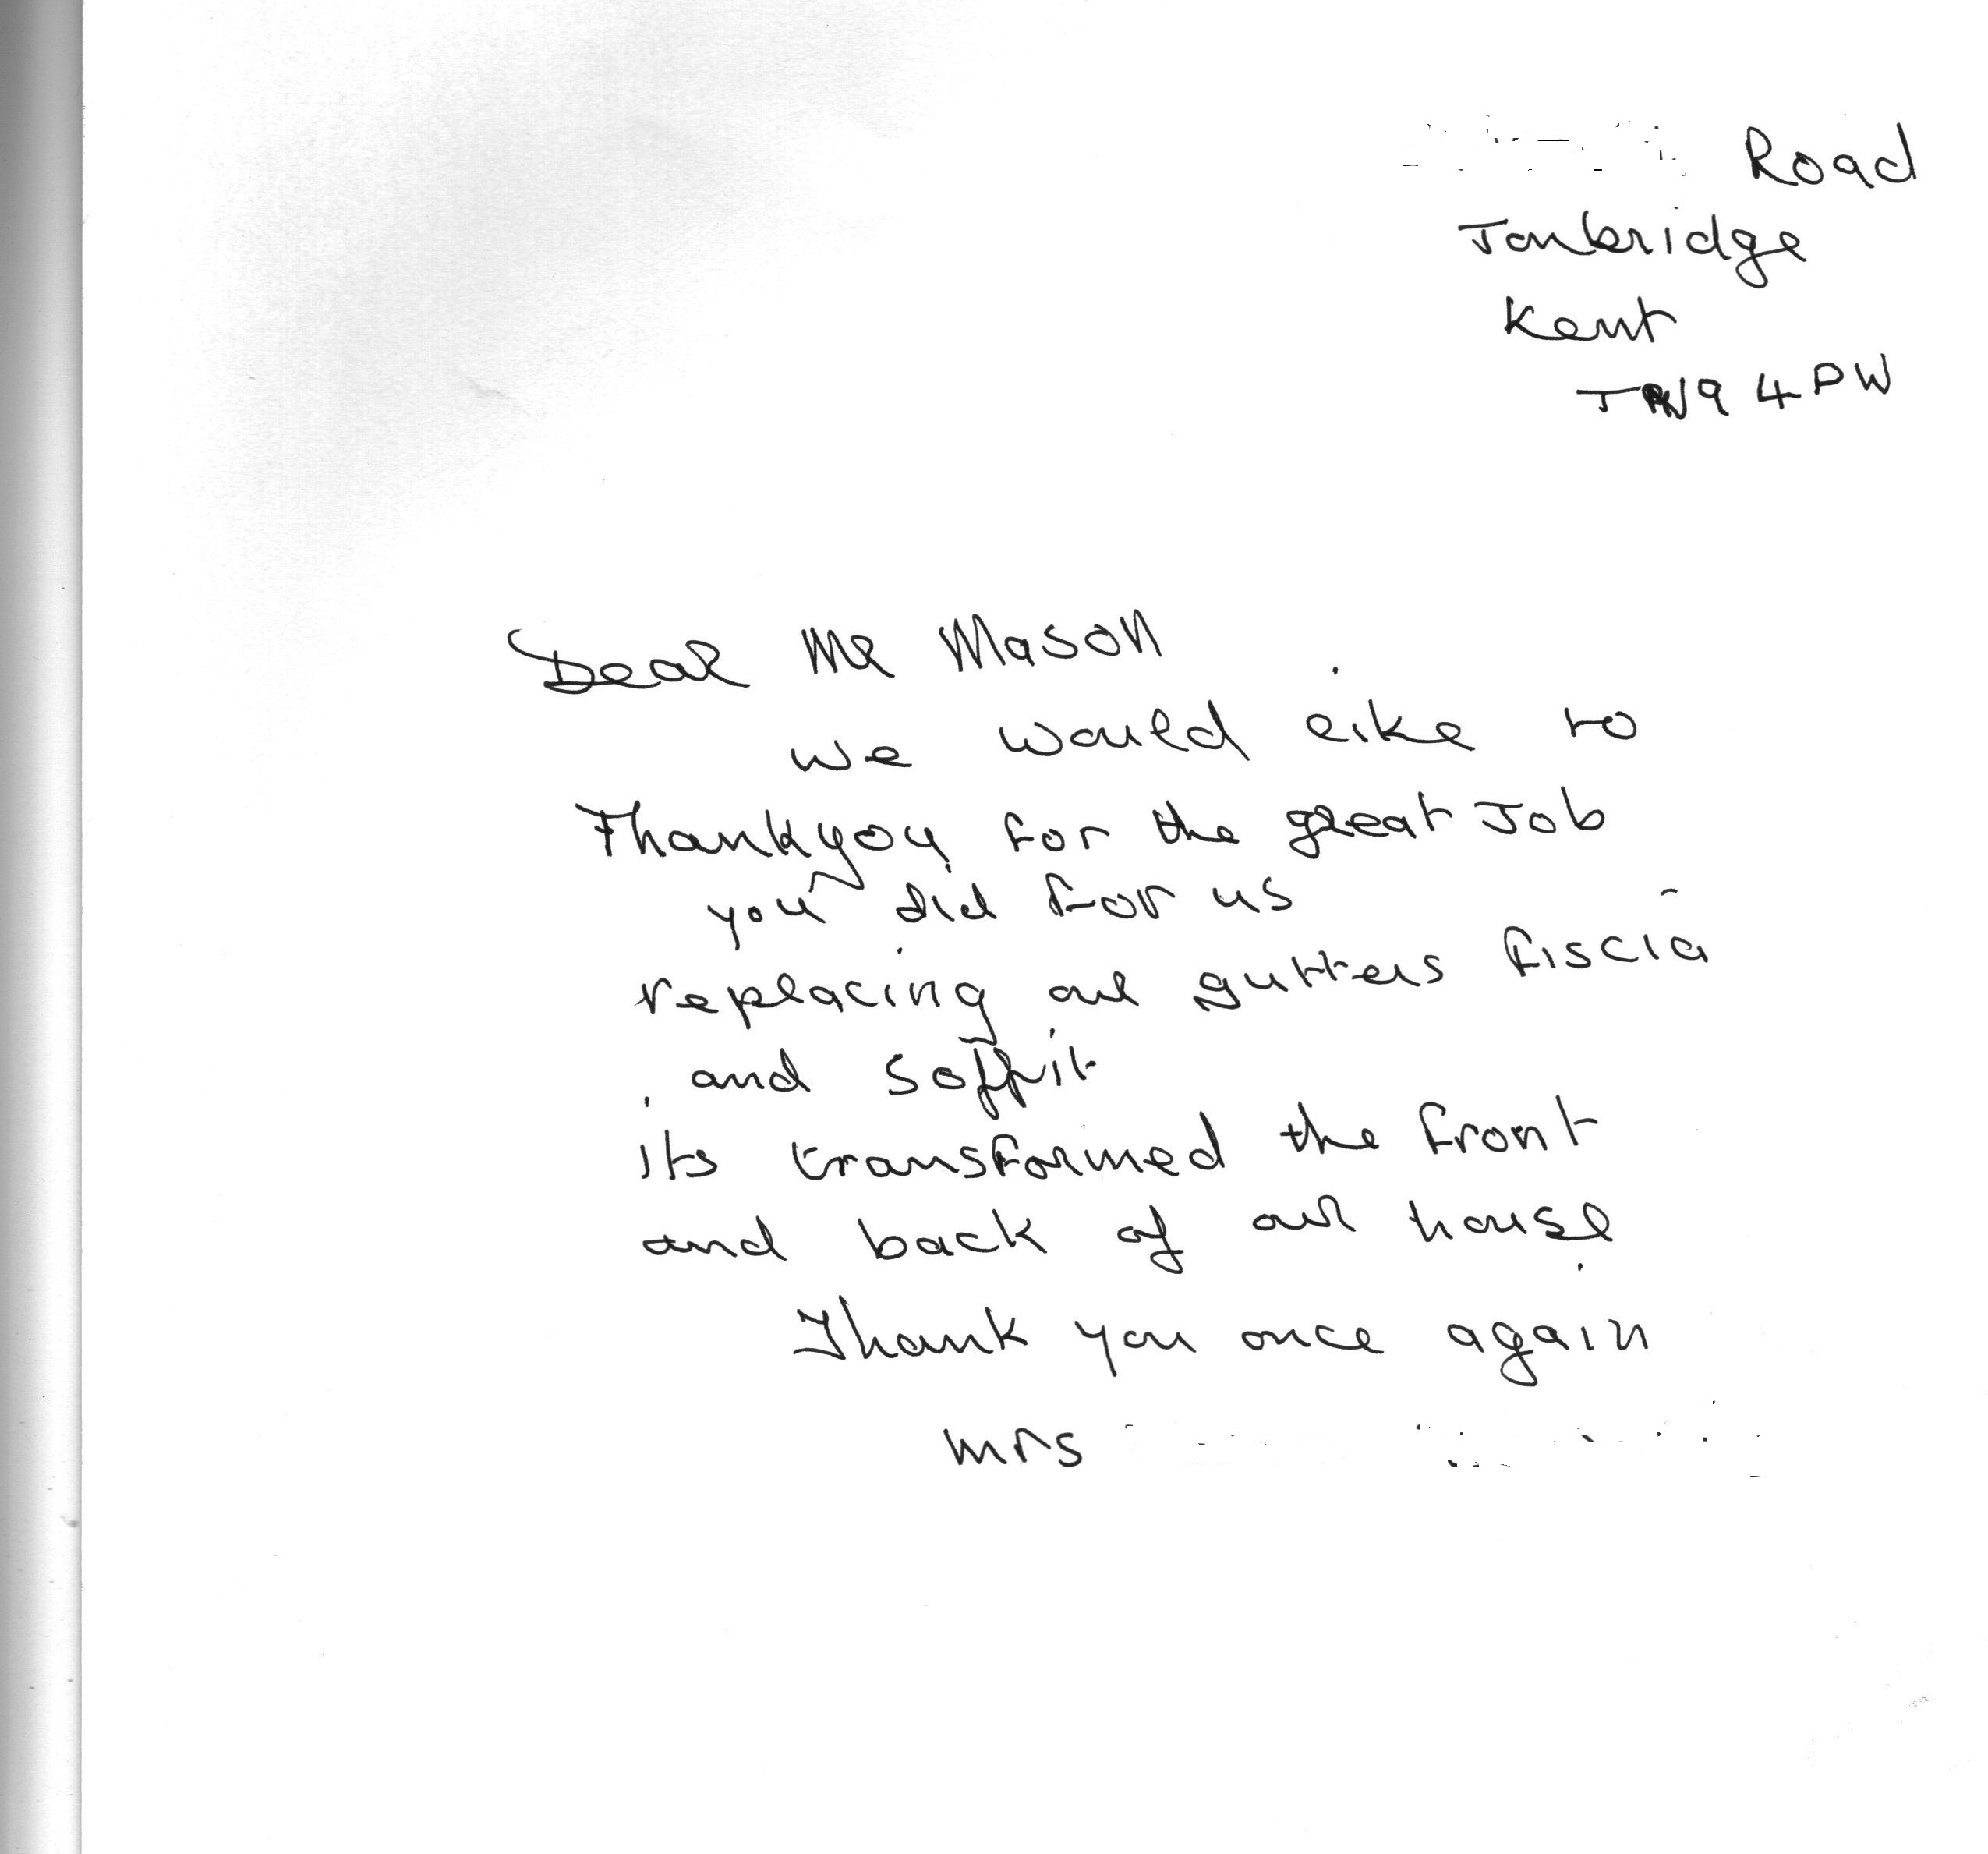 Road
Tonbridge
Kent
TN9 4PW
Dear Mr Mason
we would like to
Thankyou for the great Job
you did for us
replacing our gutters fiscia
and soffit
its transformed the front
and back of our house
Thank you once again
Mrs